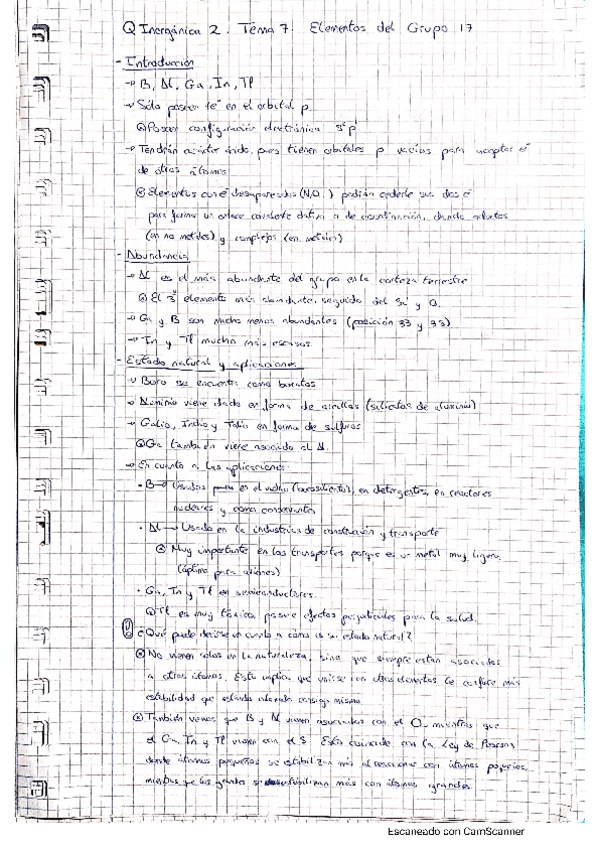 Q Inorgánica 2. Tema 7. Elementos del Grupo 17
- Introducción
→ B, Al, Ga, In, Tl
→ Sólo poseen 1e⁻ en el orbital p.
Poseen configuración electrónica s² p¹
→ Tendrán carácter ácido, pues tienen orbitales p vacíos para aceptar e⁻
de otros átomos
Elementos con e⁻ desapareados (N, O..) podrán cederle sus dos e⁻
para formar un enlace covalente dativo o de coordinación, dando aductos
(en no metales) y complejos (en metales)
- Abundancia
→ Al es el más abundante del grupo en la corteza terrestre
El 3º elemento más abundante, seguido del Si y O.
→ Ga y B son mucho menos abundantes (posición 33 y
→ In y Tl mucho más escasos
- Estado natural y aplicaciones
→ Boro se encuentra como boratos
→ Aluminio viene dado en forma de arcillas (silicatos de aluminio)
→ Galio, Indio y Talio en forma de sulfuros
Ga también viene asociado al Al.
→ En cuanto a las aplicaciones
• B → Usados en el vidrio (borosilicato), en detergentes, en reactores
nucleares y como conservantes
• Al → Usado en la industrias de construcción y transporte
Muy importante en los transportes porque es un metal muy ligero
(óptimo para aviones)
• Ga, In y Tl en semiconductores
Tl es muy tóxico, posee efectos perjudiciales para la salud.
¿Qué puede decirse en cuanto a cómo es su estado natural?
No vienen solos en la naturaleza, sino que siempre están asociados
a otros átomos. Esto implica que unirse con otros elementos le confiere más
estabilidad que estando consigo mismo
También vemos que B y Al vienen asociados con el O mientras que
el Ga, In y Tl vienen con el S. Esto coincide con la Ley de Pearson
donde átomos pequeños se estabilizan más al reaccionar con átomos pequeños,
mientras que los grandes se estabilizan más con átomos grandes
Escaneado con CamScanner